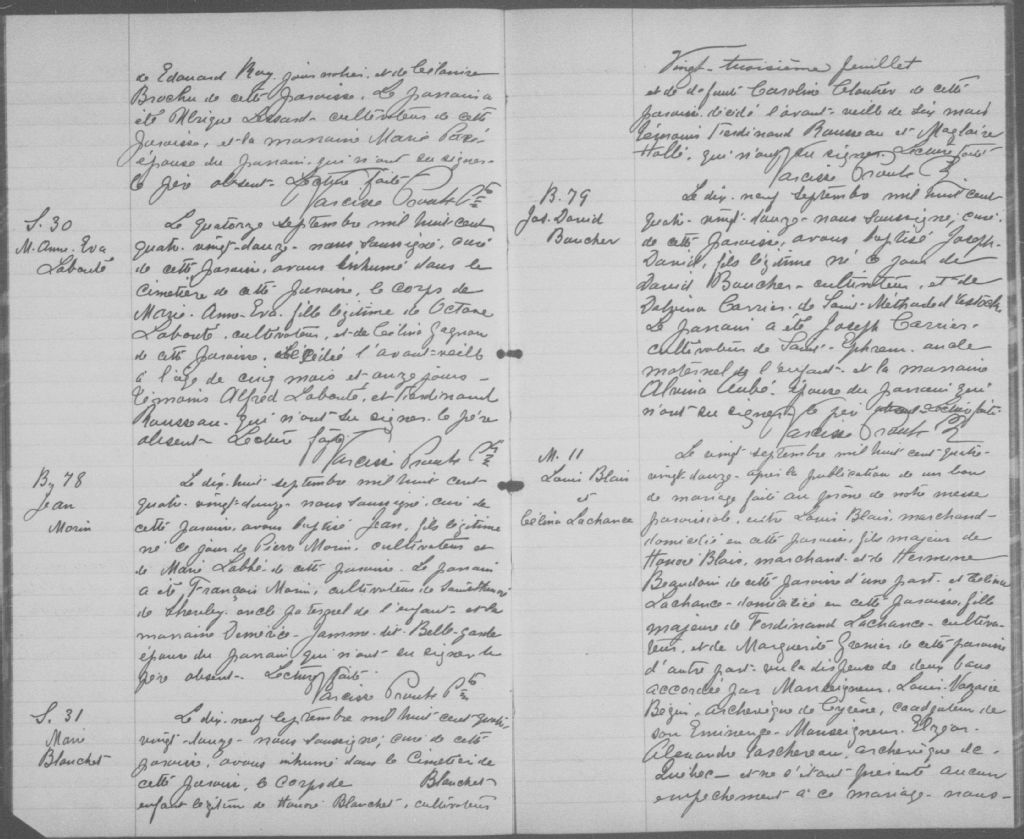 de Edouard Roy, journalier, et de Célanire
Brochu de cette paroisse. Le parrain a
été Alrique Lessard cultivateur de cette
paroisse, et la marraine Marie Paré
épouse du parrain, qui n'ont su signer.
le père absent. Lecture faite
Narcisse Proulx Ptre
S. 30
M. Anne. Eva
Labonté
Le quatorze septembre mil huit cent
quatre-vingt-douze nous soussigné, curé
de cette paroisse, avons inhumé dans le
cimetière de cette paroisse, le corps de
Marie-Anne-Eva fille légitime de Octave
Labonté, cultivateur, et de Cécilina Gagnon
de cette paroisse, décédée l'avant-veille
à l'âge de cinq mois et onze jours
Témoins Alfred Labonté, et Ferdinand
Rousseau qui n'ont su signer. le père
absent Lecture faite
Narcisse Proulx Ptre
B. 78
Jean
Morin
Le dix-huit septembre mil huit cent
quatre-vingt-douze nous soussigné, curé de
cette paroisse, avons baptisé Jean, fils légitime
né ce jour de Pierre Morin, cultivateur et
de Marie Labbé de cette paroisse. Le parrain
a été François Morin, cultivateur de
de Shenley oncle paternel de l'enfant et la
marraine Démérice Jamme-dit-Bellegarde
épouse du parrain qui n'ont su signer le
père absent. Lecture faite
Narcisse Proulx Ptre
S. 31
Marie
Blanchet
Le dix-neuf septembre mil huit cent quatre
vingt-douze nous soussigné, curé de cette
paroisse, avons inhumé dans le Cimetière de
cette paroisse, le corps de Blanchet
enfant légitime de Honoré Blanchet, cultivateur
Vingt-troisième feuillet
et de défunte Caroline Cloutier de cette
paroisse décédé l'avant-veille de six mois
Témoins Ferdinand Rousseau et Magloire
Hallé, qui n'ont su signer. Lecture faite
Narcisse Proulx Ptre
B. 79
Jos. David
Boucher
Le dix-neuf septembre mil huit cent
quatre-vingt-douze nous soussigné, curé
de cette paroisse, avons baptisé Joseph-
David, fils légitime né ce jour de
David Boucher cultivateur, et de
Delvina Carrier de Saint-Méthode d'Adstock
Le parrain a été Joseph Carrier,
cultivateur de Saint-Ephrem oncle
maternel de l'enfant et la marraine
Alvina Aubé épouse du parrain qui
n'ont su signer, le père Lecture faite
Narcisse Proulx Ptre
M. 11
Louis Blais
et
Célina Lachance
Le vingt septembre mil huit cent quatre-
vingt-douze après la publication de un ban
de mariage faite au prône de notre messe
paroissiale, entre Louis Blais, marchand
domicilié en cette paroisse, fils majeur de
Honoré Blais, marchand et de Hermine
Beaudoin de cette paroisse d'une part et Célina
Lachance domiciliée en cette paroisse, fille
majeure de Ferdinand Lachance cultiva-
teur, et de Marguerite Grenier de cette paroisse
d'autre part vu la dispense de deux bans
accordée par Monseigneur Louis-Nazaire
Bégin, archevêque de Cyrène, coadjuteur de
son Eminence Monseigneur Elzéar-
Alexandre Taschereau, archevêque de
Québec et ne s'étant présenté aucun
empêchement à ce mariage nous